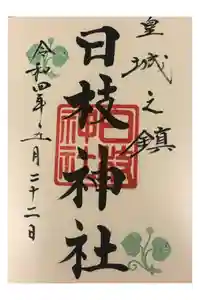 皇城之鎮
日枝神社
令和四年五月二十二日
日枝神社